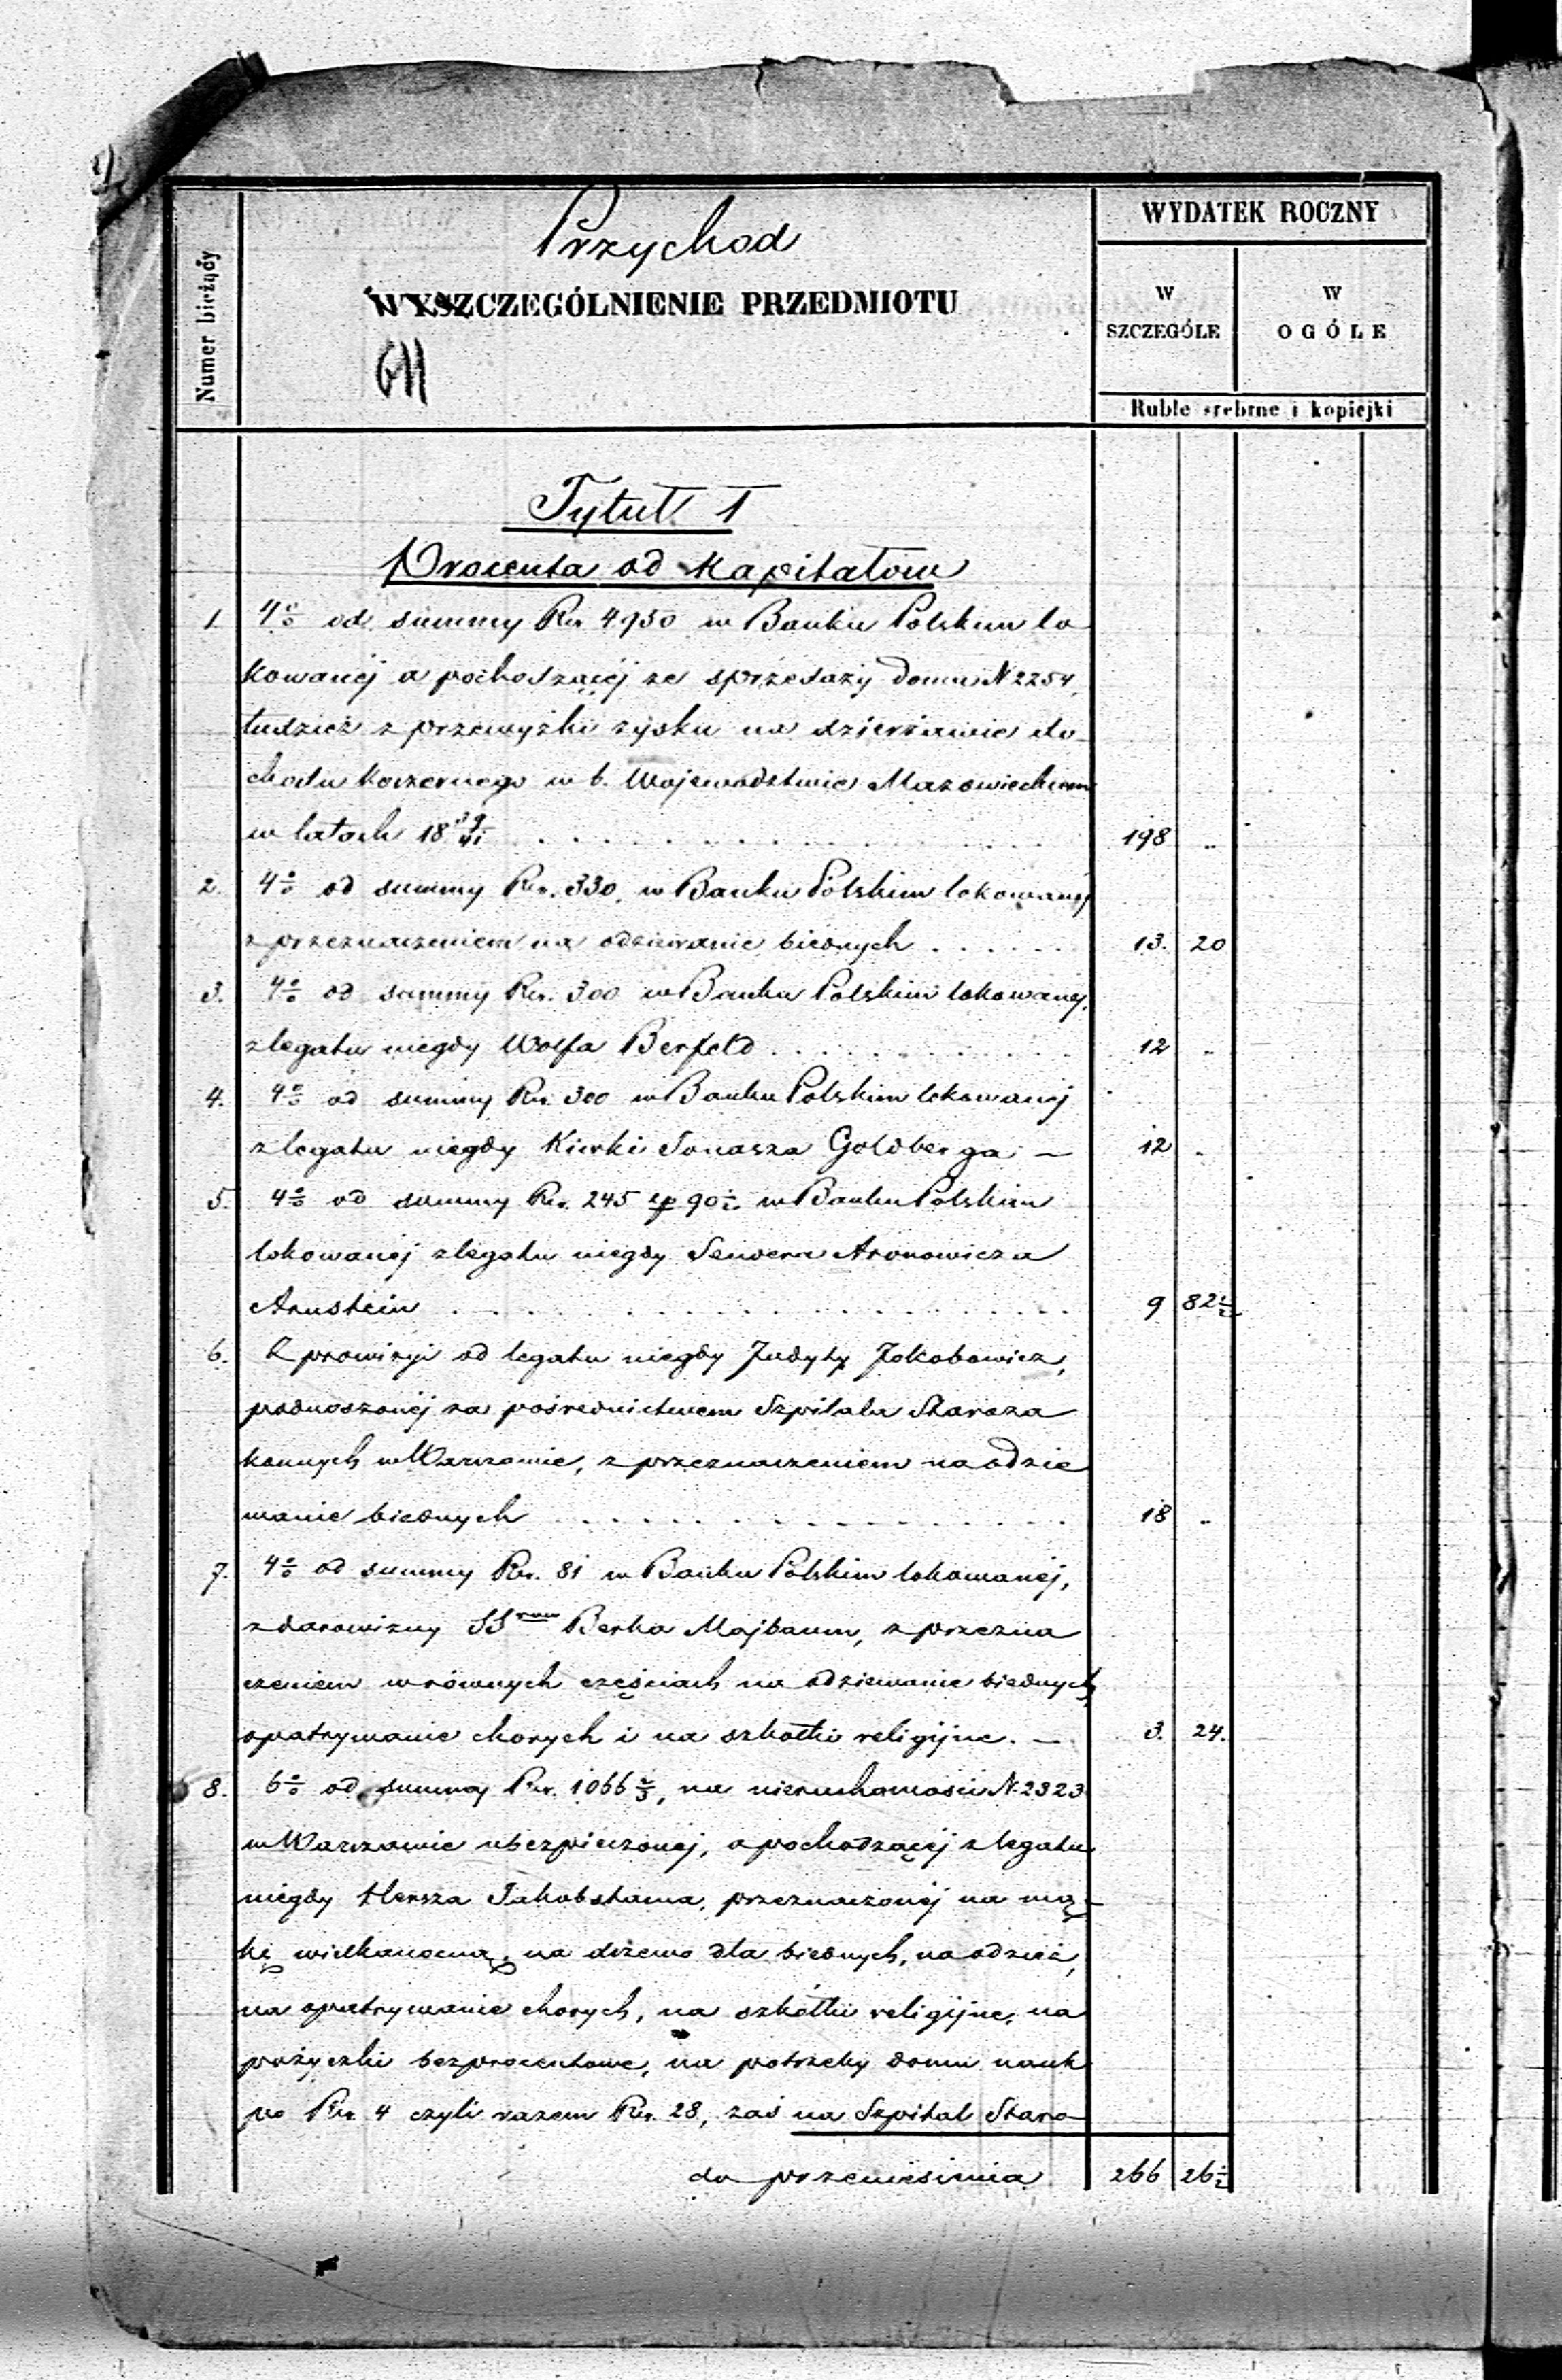 Przychod
WYSZCZEGÓLNIENIE PRZEDMIOTU
Numer bieżący
WYDATEK ROCZNY
W SZCZEGÓLE
W OGÓLE
Ruble srebrne i kopiejki
Tytuł I
Procenta od Kapitałow
1. 4% od summy Rsr 4950 w Banku Polskim lo
kowanéj a pochodzącéj ze sprzedaży domu N 2254,
tudzież z przewyżki zysku na dzierżawie do
chodu koszernego w b. Województwie Mazowieckiem
w latach 18 39/41 . . . 198 „
2. 4% od summy Rsr. 330, w Banku Polskim lokowanéj
z przeznaczeniem na odziewanie biednych . . . 13. 20
3. 4% od summy Rsr. 300 w Banku Polskim lokowanéj,
z legatu niegdy Wolfa Berfeld . . . 12 „
4. 4% od summy Rsr. 300 w Banku Polskim lokowanéj
z legatu niegdy Kiwki Jonasza Goldberga — 12 „
5. 4% od summy Rsr. 245 kp 90½ w Banku Polskim
lokowanéj z legatu niegdy Aronowicza
Arnstein . . . 9 82½
6. Z prowizyi od legatu niegdy Judyty Jakobowicz,
podnoszonéj za pośrednictwem Szpitala Staroza
konnych w Warszawie, z przeznaczeniem na odzie
wanie biednych . . . 18 „
7. 4% od summy Rsr. 81 w Banku Polskim lokowanéj,
z darowizny SSrów Berka Majbaum, z przezna
czeniem w równych częściach na odziewanie biednych,
opatrywanie chorych i na szkółki religijne. — 3. 24.
8. 6% od summy Rsr. 1066⅔, na nieruchomości N. 2323
w Warszawie ubezpieczonéj, a pochodzącéj z legatu
niegdy Hersza Jakobstama, przeznaczonéj na mą-
kę wielkanocną, na drzewo dla biednych, na odzież,
na opatrywanie chorych, na szkółki religijne, na
pożyczki bezprocentowe, na potrzeby domu nauk
po Rsr. 4 czyli razem Rsr. 28, zaś na Szpital Staro-
do przeniesienia 266 26½